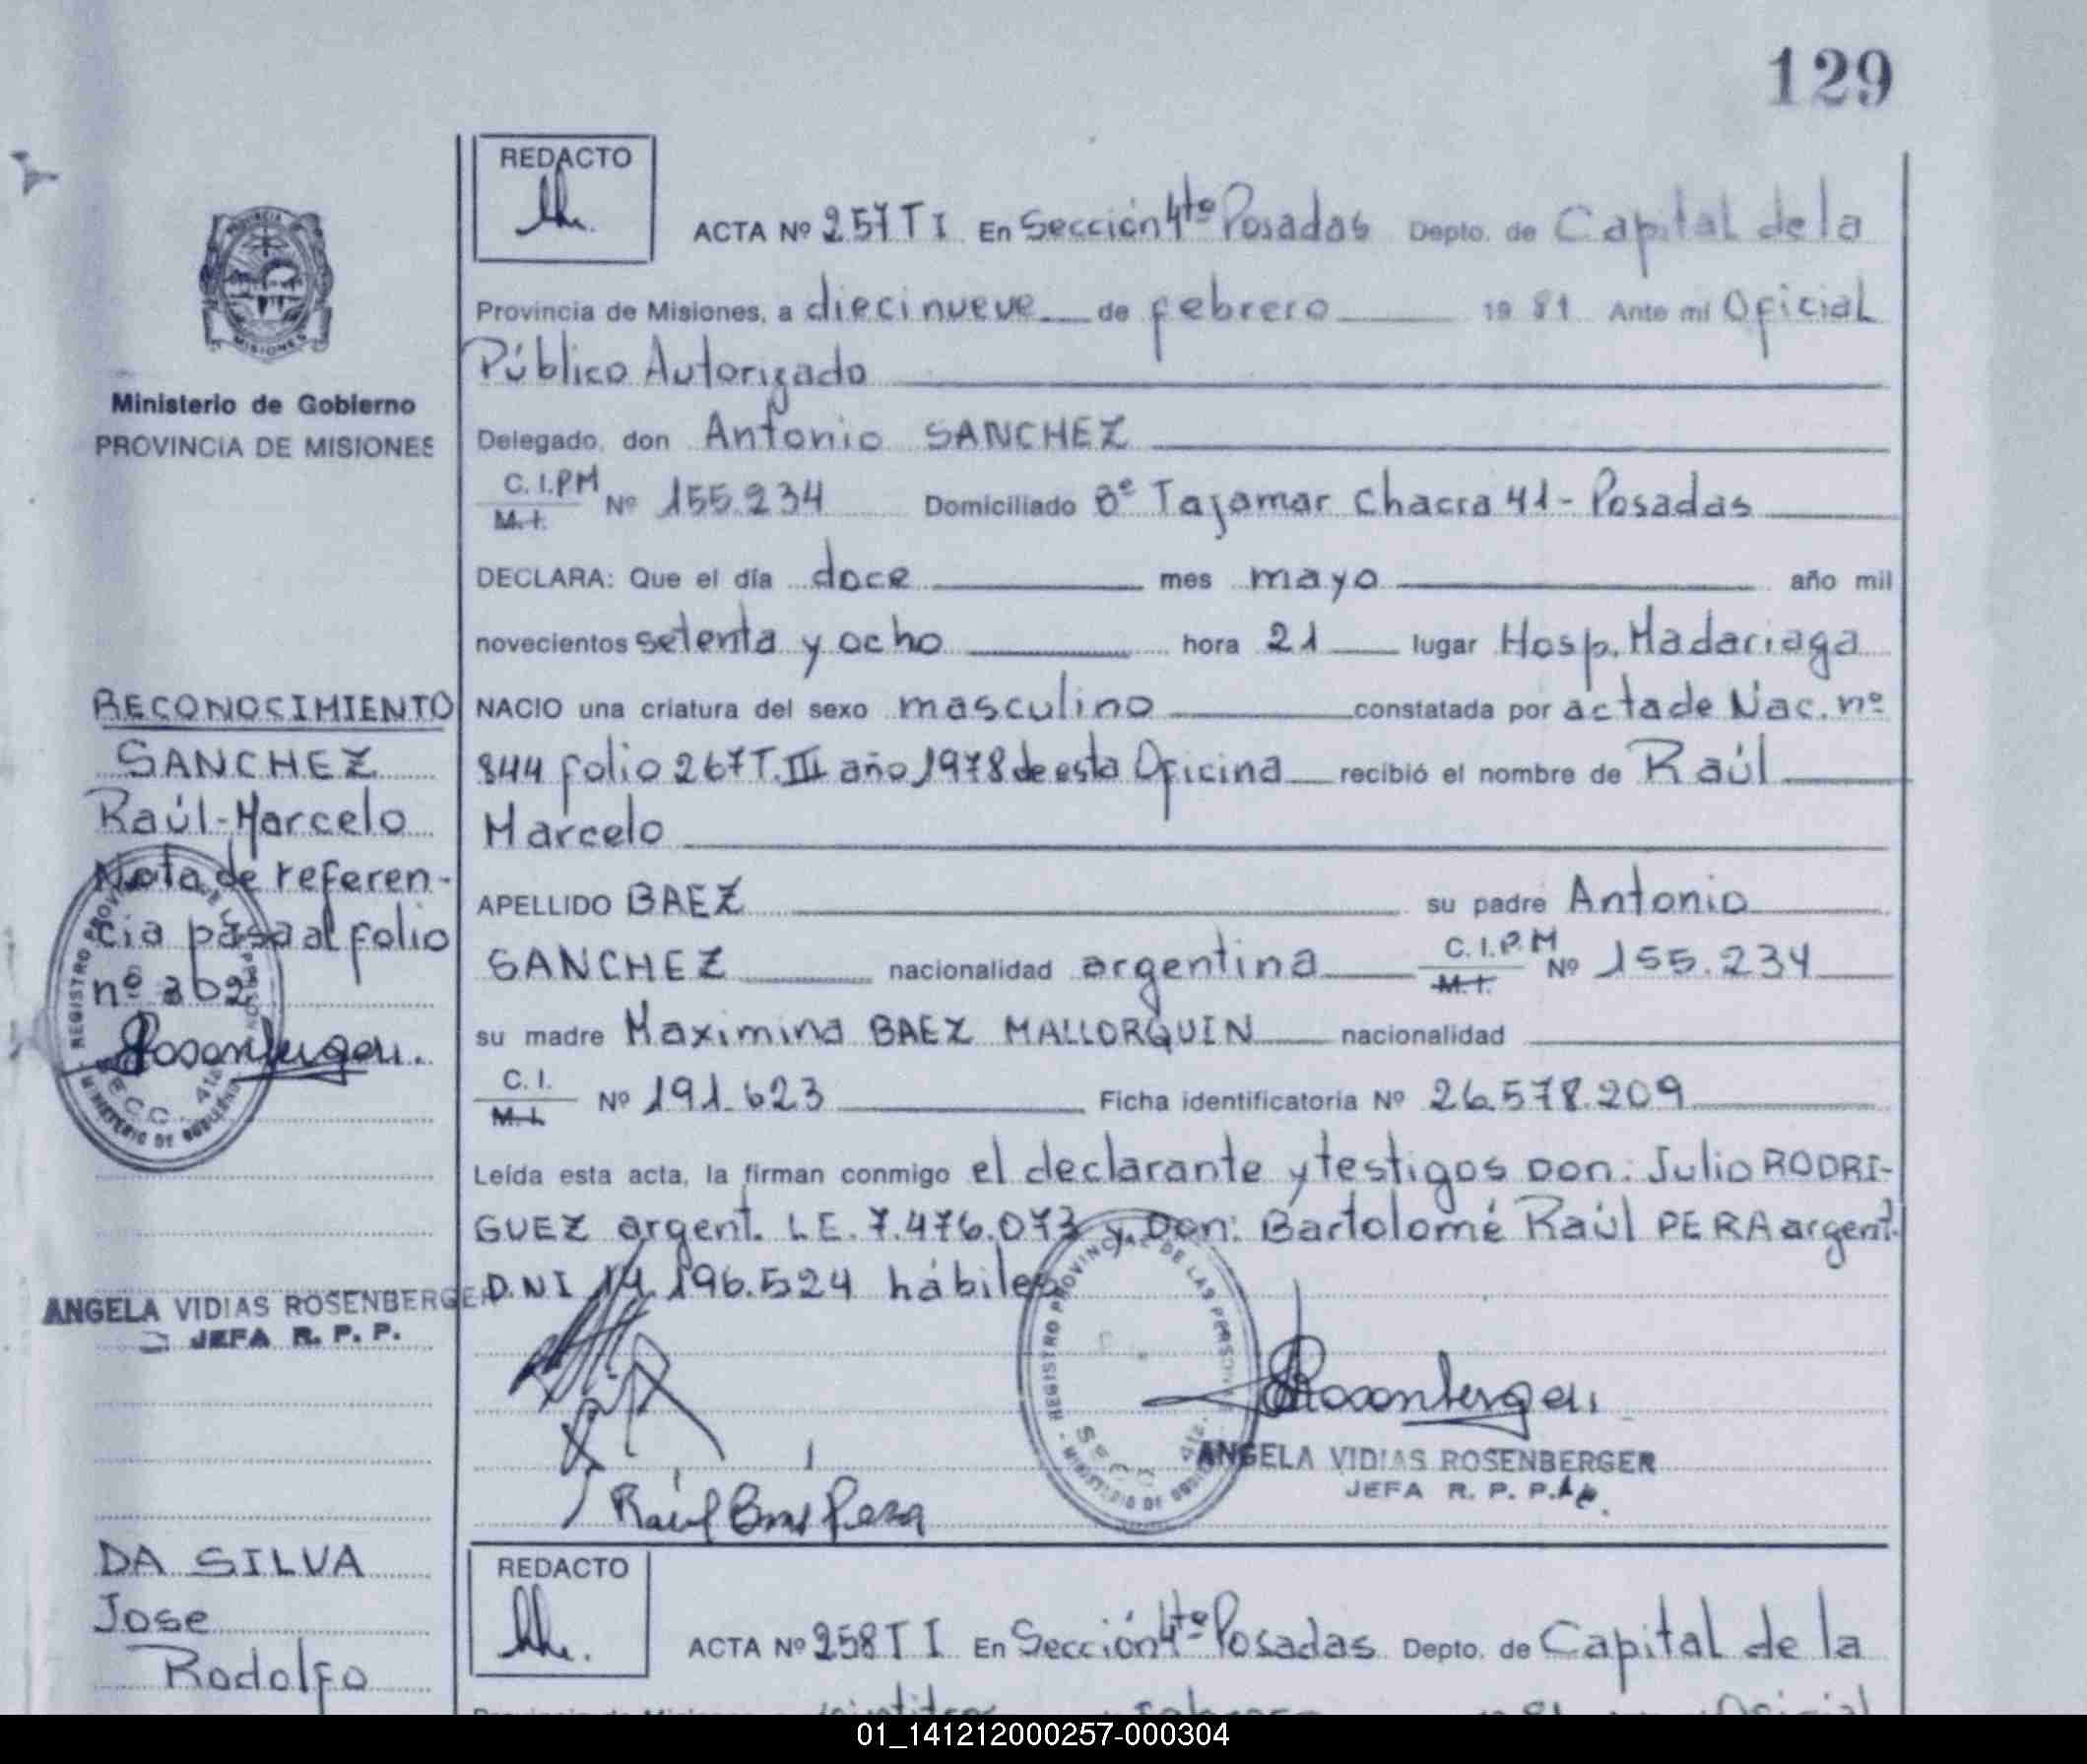 129
REDACTO
ACTA Nº 257 T I En Sección 4tº Posadas Depto. de Capital de la
Provincia de Misiones, a diecinueve de febrero 19 81 Ante mí Oficial
Público Autorizado
Delegado, don Antonio SANCHEZ
C. I.PM
M. I. Nº 155.234 Domiciliado Bº Tajamar Chacra 41 - Posadas
DECLARA: Que el día doce mes mayo año mil
novecientos setenta y ocho hora 21 lugar Hosp. Madariaga
NACIO una criatura del sexo masculino constatada por acta de Nac. nº
844 folio 267 T. III año 1978 de esta Oficina recibió el nombre de Raúl
Marcelo
APELLIDO BAEZ su padre Antonio
SANCHEZ nacionalidad argentina C. I.P.M
M. I. Nº 155.234
su madre Maximina BAEZ MALLORQUIN nacionalidad
C. I.
M. I. Nº 191.623 Ficha identificatoria Nº 26.578.209
Leída esta acta, la firman conmigo el declarante y testigos Don: Julio RODRI-
GUEZ argent. L.E. 7.476.073 y Don: Bartolomé Raúl PERA argent.
D.N.I 14.196.524 hábiles
REGISTRO PROVINCIAL DE LAS PERSONAS
SECC. 4ta.
MINISTERIO DE GOBIERNO
Rosenberger
ANGELA VIDIAS ROSENBERGER
JEFA R. P. P.
Raúl Pera
PROVINCIA
MISIONES
Ministerio de Gobierno
PROVINCIA DE MISIONES
RECONOCIMIENTO
SANCHEZ
Raúl-Marcelo
Nota de referen-
cia pasa al folio
nº 302
Rosenberger
REGISTRO PROVINCIAL DE LAS PERSONAS
SECC. 4ta
MINISTERIO DE GOBIERNO
ANGELA VIDIAS ROSENBERGER
JEFA R. P. P.
DA SILVA
Jose
Rodolfo
REDACTO
ACTA Nº 258 T I En Sección 4tº Posadas Depto. de Capital de la
01_141212000257-000304